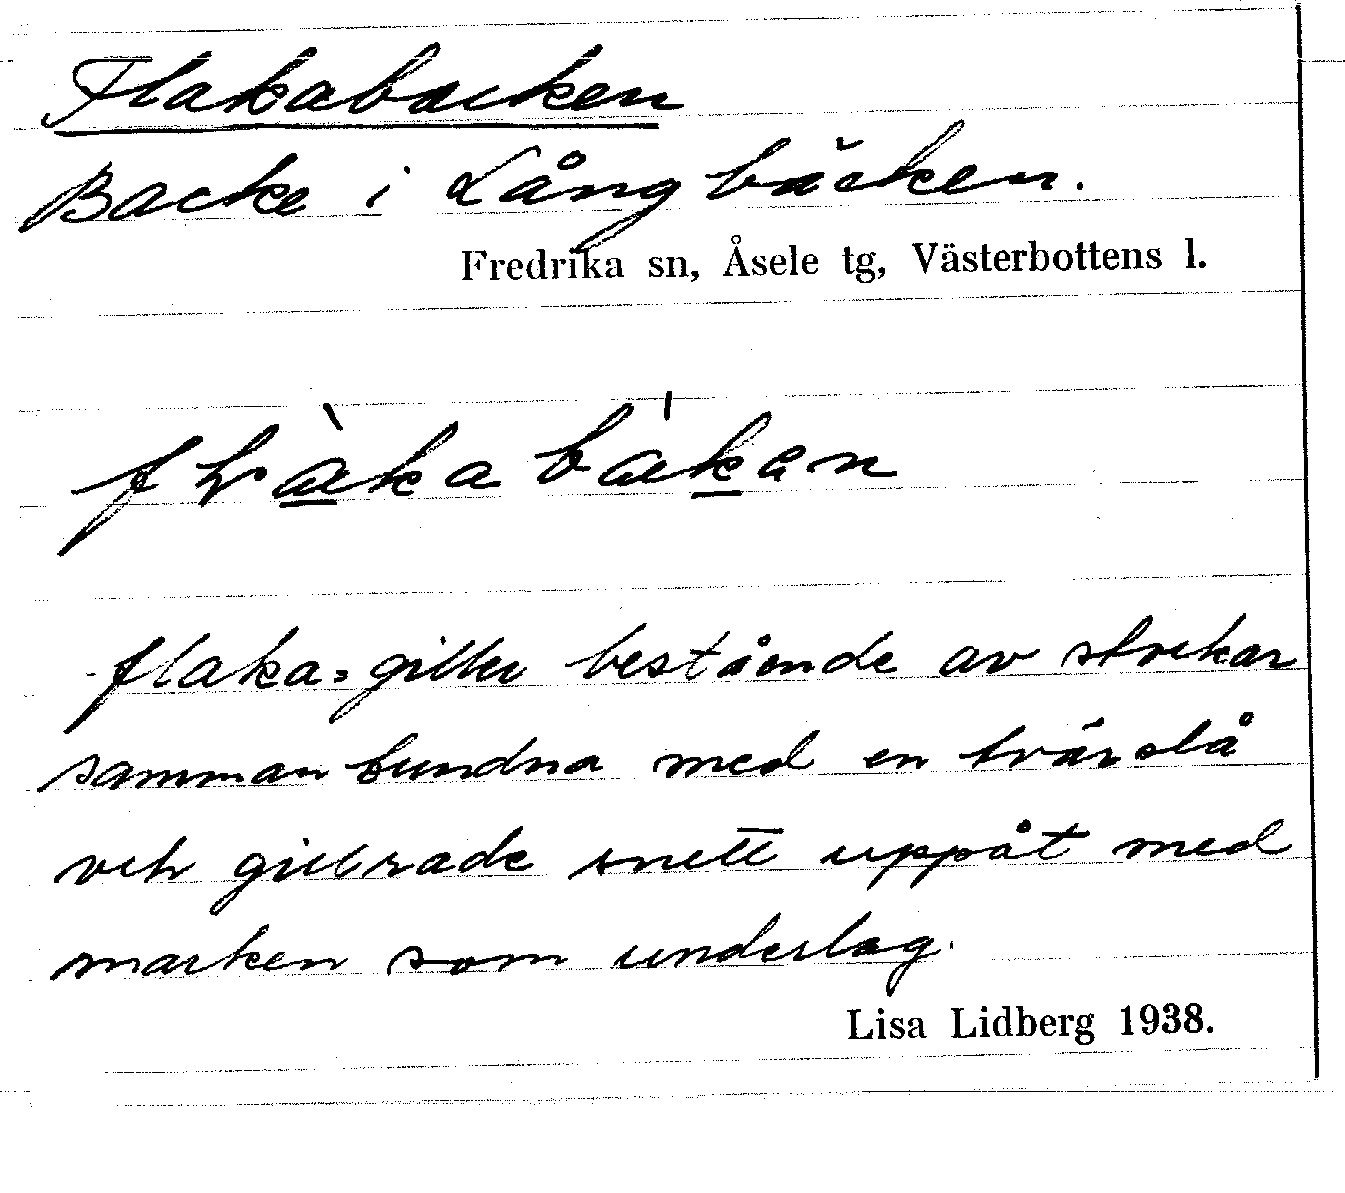 Flakabacken
Backe i Långbäcken.
Fredrika sn, Åsele tg, Västerbottens l.
flaka = giller bestående av stockar
samman bundna med en tvärslå
och gillrade snett uppåt med
marken som underlag.
Lisa Lidberg 1938.